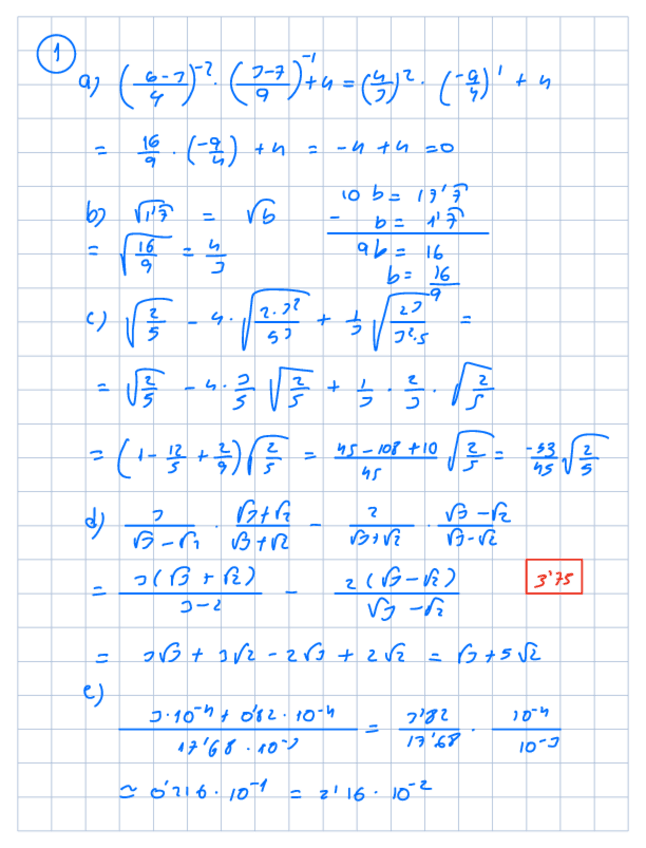 1
a) (6-3/4)^-2 · (3-7/9)^-1 + 4 = (4/3)^2 · (-9/4)^1 + 4
= 16/9 · (-9/4) + 4 = -4 + 4 = 0
b) √1'7̂ = √b
10 b = 17'7̂
- b = 1'7̂
= √16/9 = 4/3
9b = 16
b = 16/9
c) √2/5 - 4 · √2·3²/5³ + 1/3 √2³/3²·5 =
= √2/5 - 4 · 3/5 √2/5 + 1/3 · 2/3 · √2/5
= (1 - 12/5 + 2/9) √2/5 = 45 - 108 + 10/45 √2/5 = -53/45 √2/5
d) 3/√3 - √2 · √3 + √2/√3 + √2 - 2/√3 + √2 · √3 - √2/√3 - √2
= 3(√3 + √2)/3 - 2 - 2(√3 - √2)/√3 - √2
3'75
= 3√3 + 3√2 - 2√3 + 2√2 = √3 + 5√2
e)
3·10^-4 + 0'82 · 10^-4/17'68 · 10^-3 = 3'82/17'68 · 10^-4/10^-3
≃ 0'216 · 10^-1 = 2'16 · 10^-2